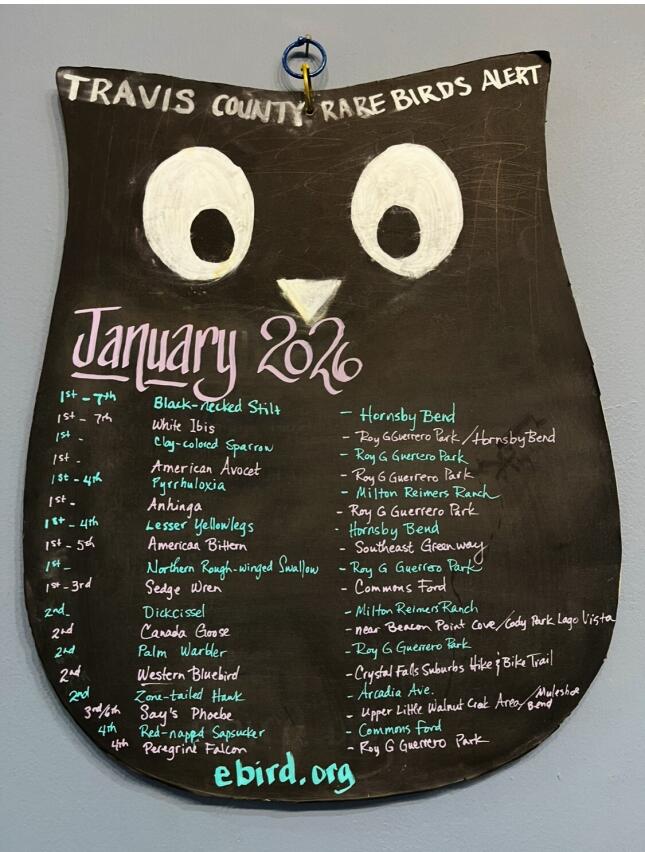 TRAVIS COUNTY RARE BIRDS ALERT
January 2026
1st - 7th Black-necked Stilt - Hornsby Bend
1st - 7th White Ibis - Roy G Guerrero Park / Hornsby Bend
1st - Clay-colored Sparrow - Roy G Guerrero Park
1st - American Avocet - Roy G Guerrero Park
1st - 4th Pyrrhuloxia - Milton Reimers Ranch
1st - Anhinga - Roy G Guerrero Park
1st - 4th Lesser Yellowlegs - Hornsby Bend
1st - 5th American Bittern - Southeast Greenway
1st - Northern Rough-winged Swallow - Roy G Guerrero Park
1st - 3rd Sedge Wren - Commons Ford
2nd Dickcissel - Milton Reimers Ranch
2nd Canada Goose - near Beacon Point Cove / Cody Park Lago Vista
2nd Palm Warbler - Roy G Guerrero Park
2nd Western Bluebird - Crystal Falls Suburbs Hike & Bike Trail
2nd Zone-tailed Hawk - Arcadia Ave.
3rd/6th Say's Phoebe - Upper Little Walnut Creek Area / Muleshoe Bend
4th Red-naped Sapsucker - Commons Ford
4th Peregrine Falcon - Roy G Guerrero Park
ebird.org